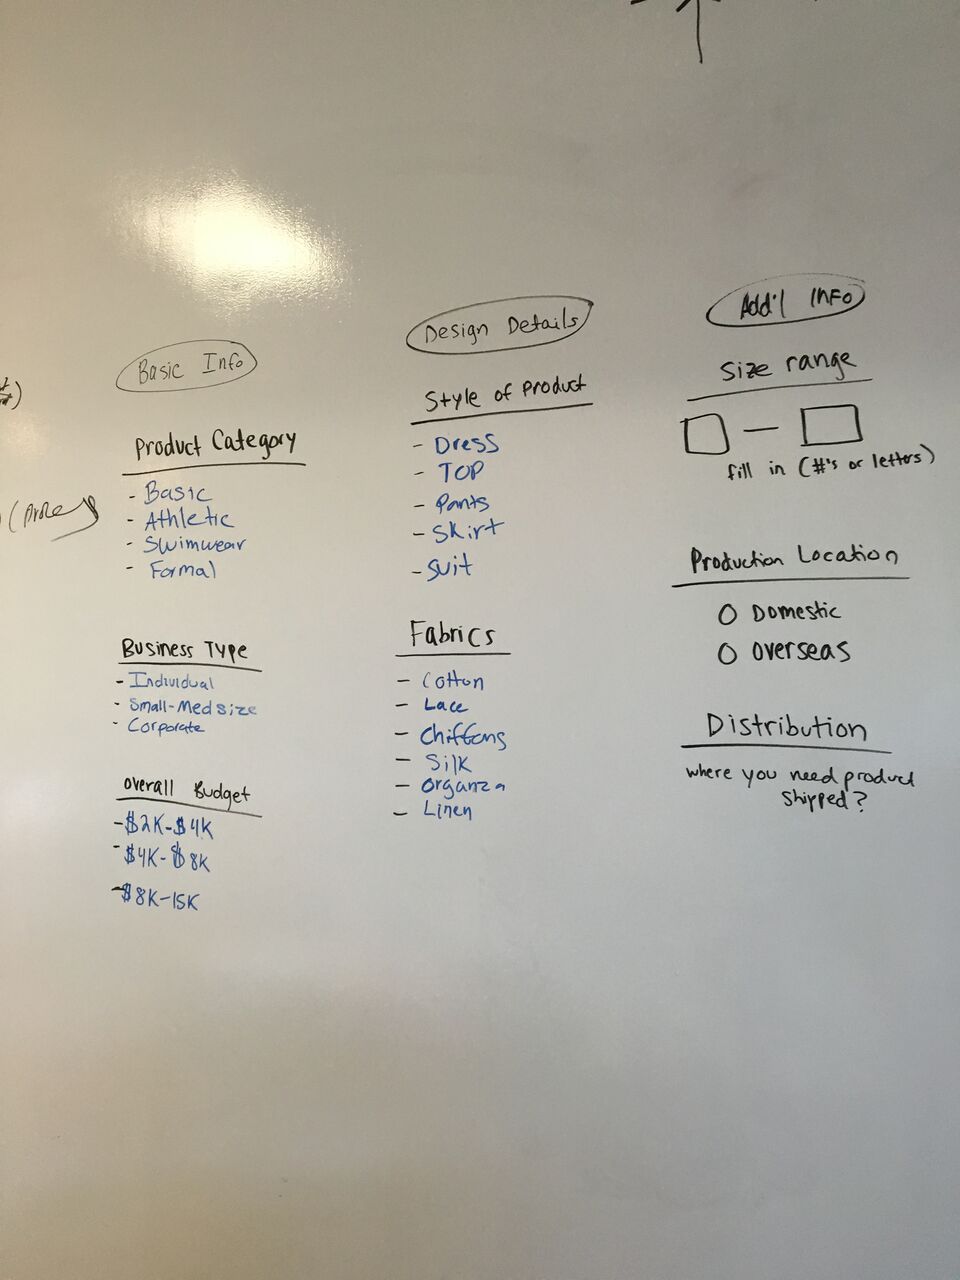 Basic Info
Product Category
- Basic
- Athletic
- Swimwear
- Formal
Business Type
- Individual
- Small-Med size
- Corporate
Overall Budget
- $2K-$4K
- $4K-$8K
- $8K-15K
Design Details
Style of Product
- Dress
- TOP
- Pants
- Skirt
- Suit
Fabrics
- Cotton
- Lace
- Chiffons
- Silk
- Organza
- Linen
Add'l Info
Size range
fill in (#'s or letters)
Production Location
O Domestic
O Overseas
Distribution
where you need product
shipped?